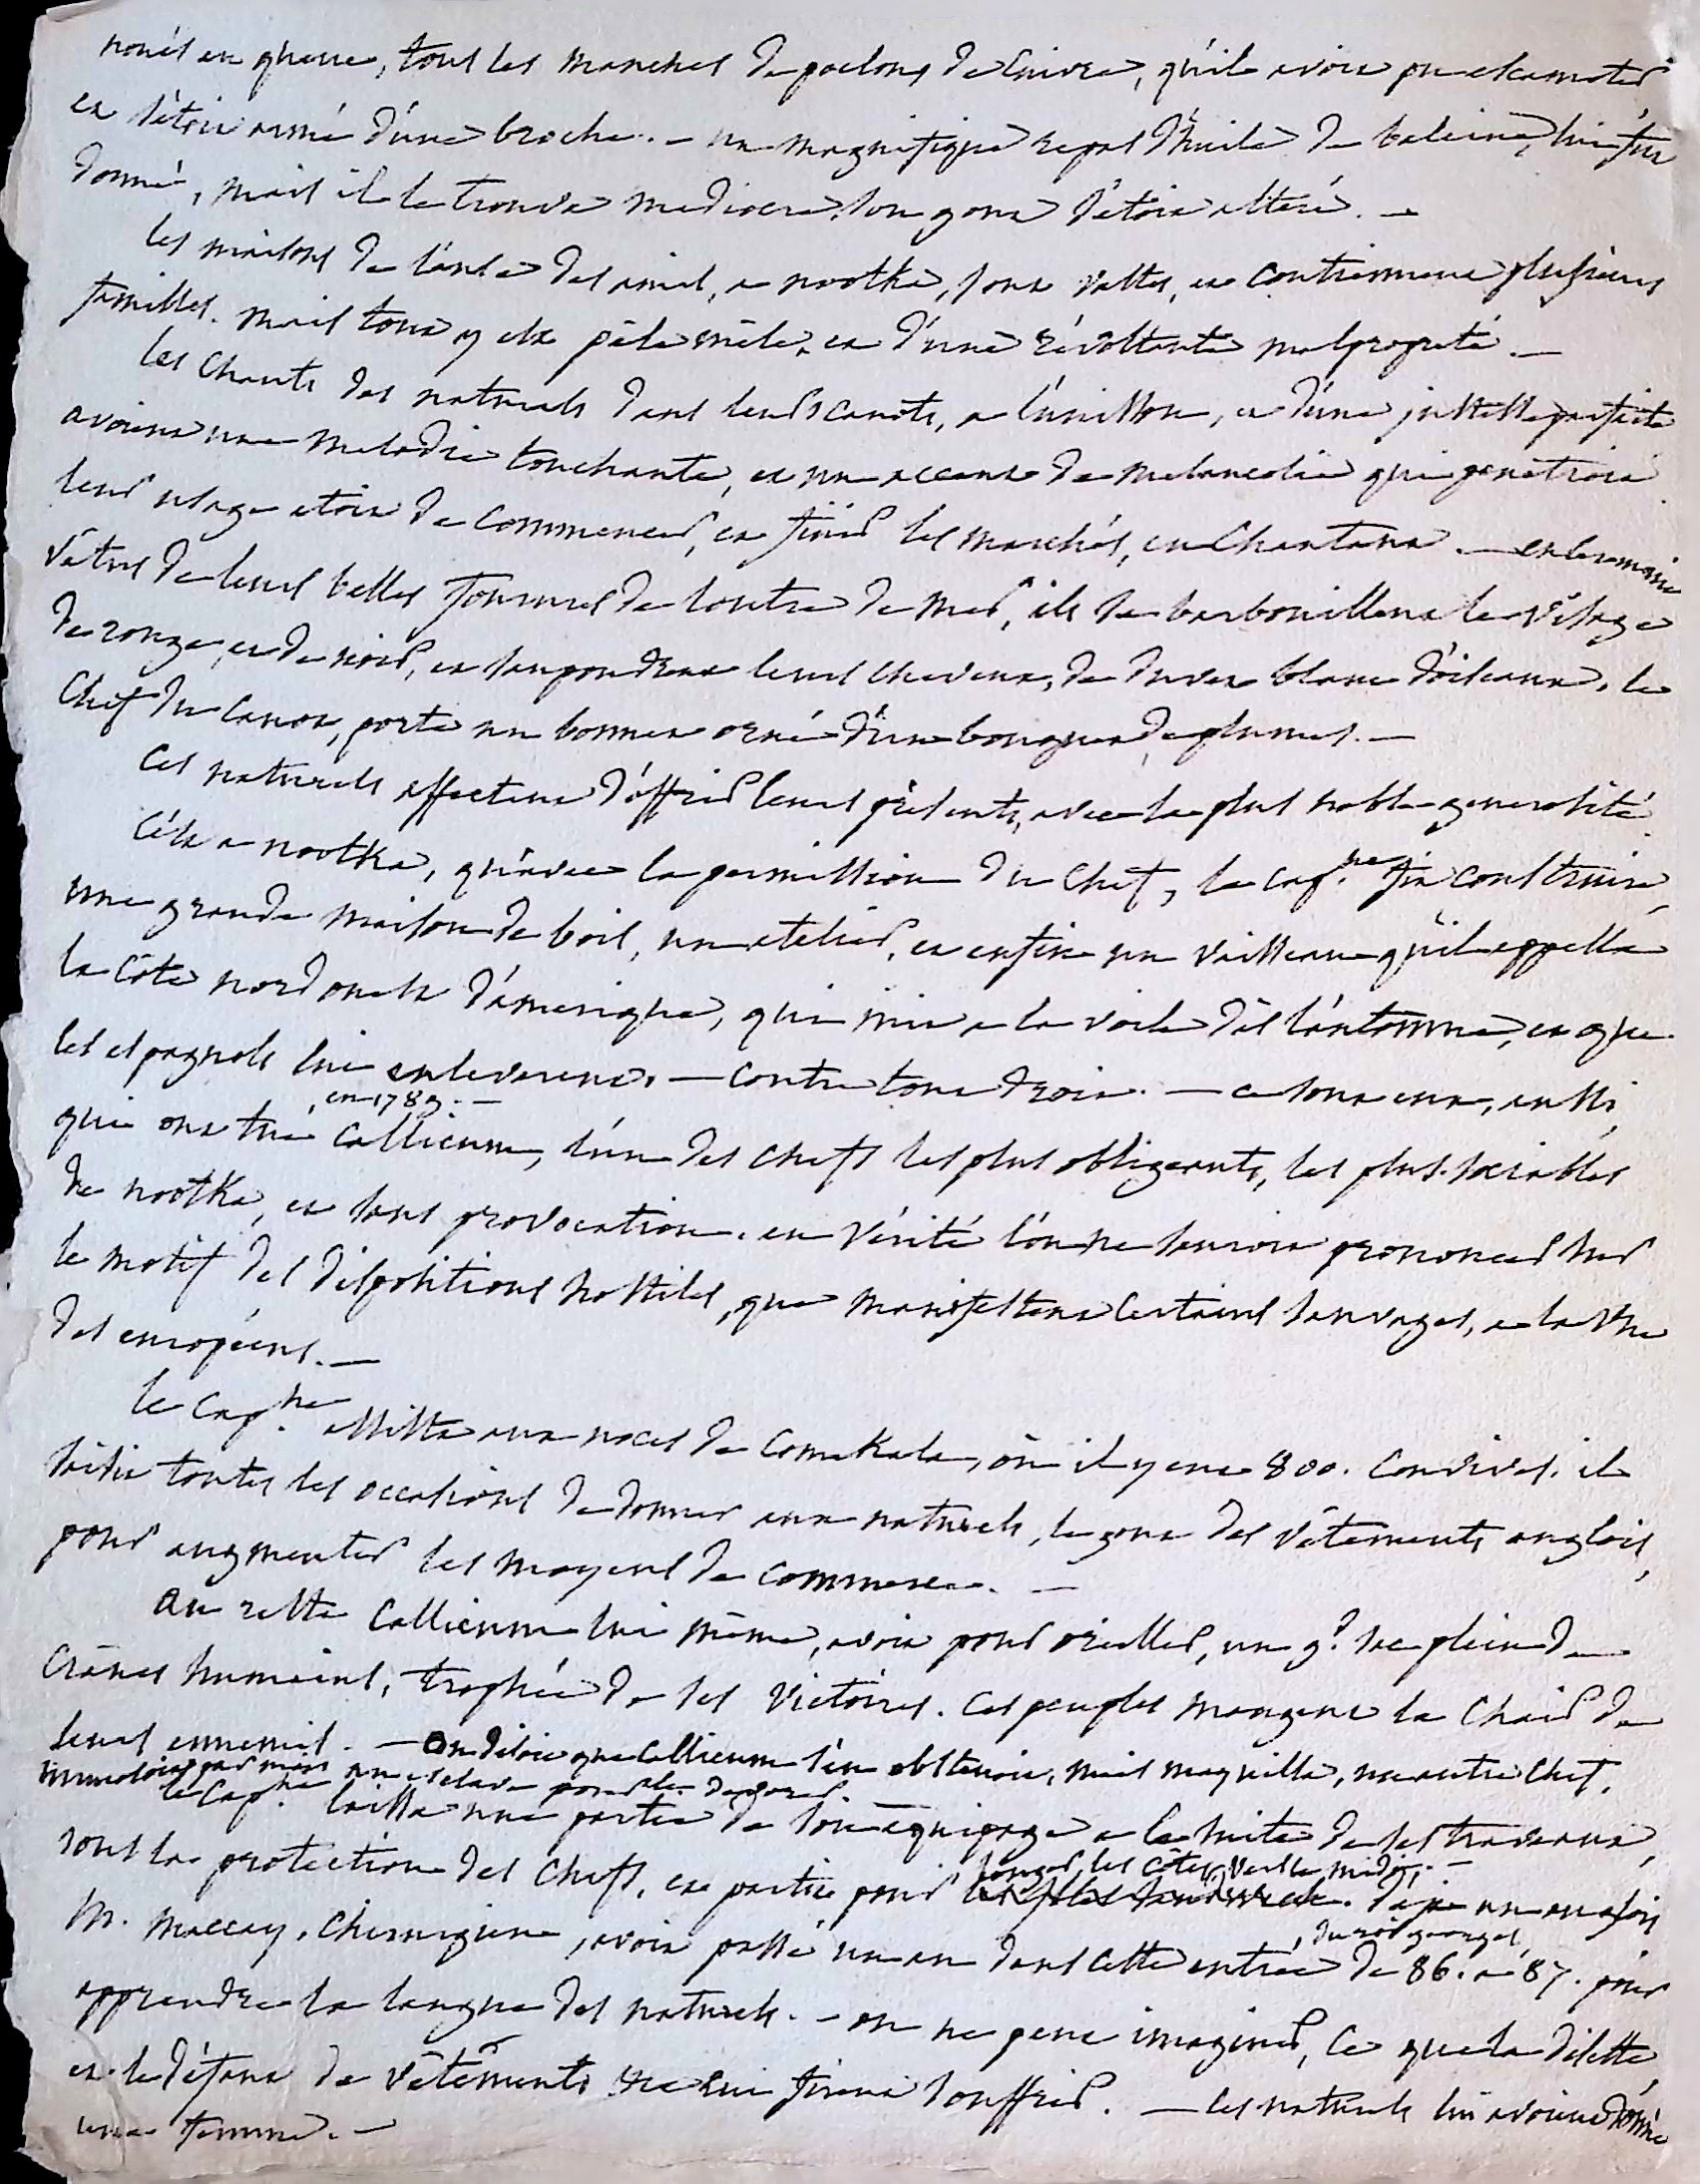 noués en queue, tous les manches de poelons de cuivre, qu'il avoit pu escamoter
et s'étoit armé d'une broche. - un magnifique repas d'huile de baleine, lui fut
donné, mais il le trouva mediocre, son gout s'étoit alteré. -
les maisons de l'anse des amis, a nootka, sont vastes, et contiennent plusieurs
familles. mais tout y est pêle mêle, et d'une révoltante malpropreté. -
les chants des naturels dans leurs canots, a l'unisson, et d'une justesse parfaite
avoient une melodie touchante, et un accent de melancolie qui penetroit
leur usage etoit de commencer, et finir les marchés, en chantant. -
vêtus de leurs belles fourrures de loutre de mer, ils se barbouillent le visage
de rouge, et de noir, et saupoudrent leurs cheveux, de duvet blanc d'oiseaux. le
chef du canot, porte un bonnet orné d'un bouquet de plumes. -
ces naturels affectent d'offrir leurs présents, avec la plus noble generosité.
c'est a nootka, qu'avec la permission du chef, le cap.ne fit construire,
une grande maison de bois, un atelier, et enfin un vaisseau qu'il appella
la côte nord ouest d'amerique, qui mit a la voile dès l'automne, et que
les espagnols lui enleverent. - contre tout droit. - ce sont eux, aussi,
, en 1789. -
qui ont tué callicum, l'un des chefs les plus obligeants, les plus sociables
de nootka, et sans provocation. en vérité l'on ne sauroit prononcer sur
le motif des dispositions hostiles, que manifestent certains sauvages, a la vue
des européens. -
le cap.ne assista aux noces de comekala, où il y eut 800. convives. il
saisit toutes les occasions de donner aux naturels, le gout des vêtements anglois,
pour augmenter les moyens de commerce. -
au reste callicum lui même, avoit pour oreiller, un gd. sac plein de
crânes humains, trophée de ses victoires. ces peuples mangent la chair de
leurs ennemis. - on disoit que callicum s'en abstenoit, mais maquilla, un autre chef,
immoloit par mois un esclave pour le devorer.
le cap.ne laissa une partie de son equipage a la suite de ses travaux,
sous la protection des chefs, et partit pour
longer les côtes, vers le midi. -
déja une fois
M. maccay, chirurgien, avoit passé un an dans cette entrée de 86. a 87. pour
, du roi georges,
apprendre la langue des naturels. - on ne peut imaginer, ce que la disette,
et le défaut de vêtements lui firent souffrir. - les naturels lui avoient donné
une femme. -